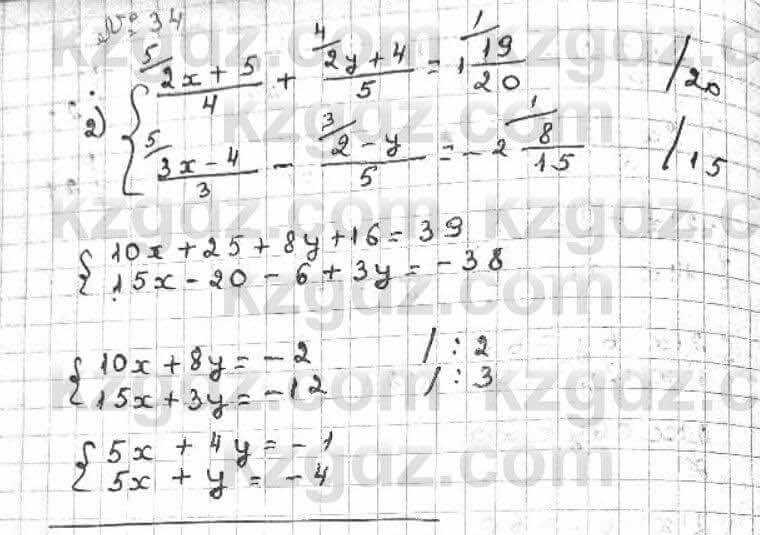 № 34
2) { (2x + 5)/4 + (2y + 4)/5 = 1 19/20 /20
5/ 4/ 1/
{ (3x - 4)/3 - (2 - y)/5 = - 2 8/15 /15
5/ 3/ 1/
{ 10x + 25 + 8y + 16 = 39
15x - 20 - 6 + 3y = - 38
{ 10x + 8y = - 2 / : 2
15x + 3y = - 12 / : 3
{ 5x + 4y = - 1
5x + y = - 4
kzgdz.com